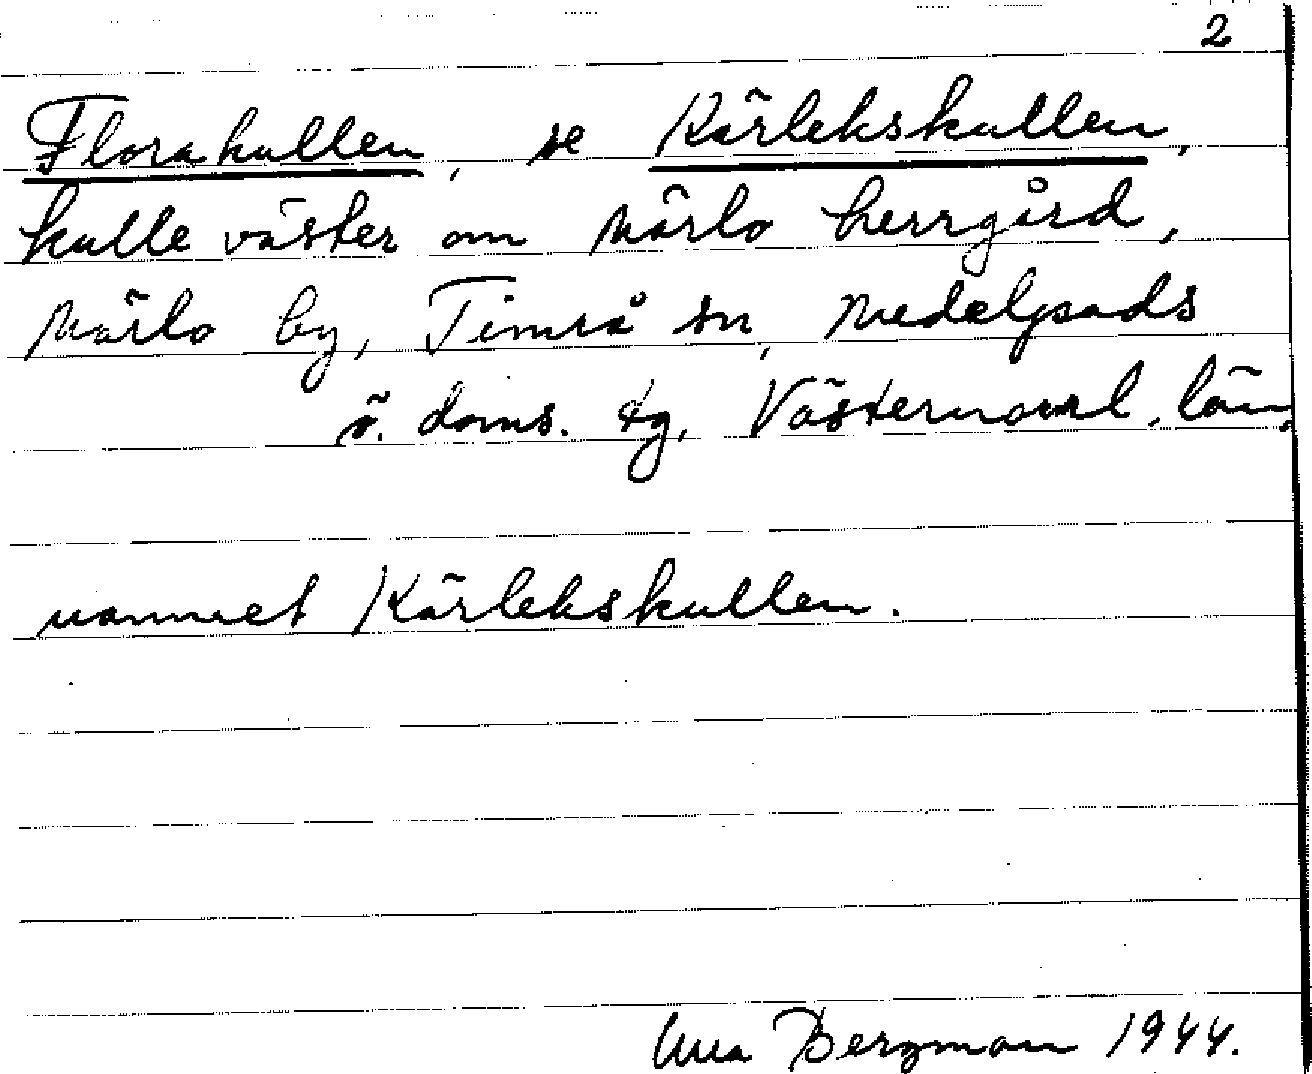 2
Florakullen, se Kärlekskullen,
kulle väster om Märlo herrgård,
Märlo by, Timrå sn, Medelpads
ö. doms. tg, Västernorrl. län.
namnet Kärlekskullen.
Bergman 1944.